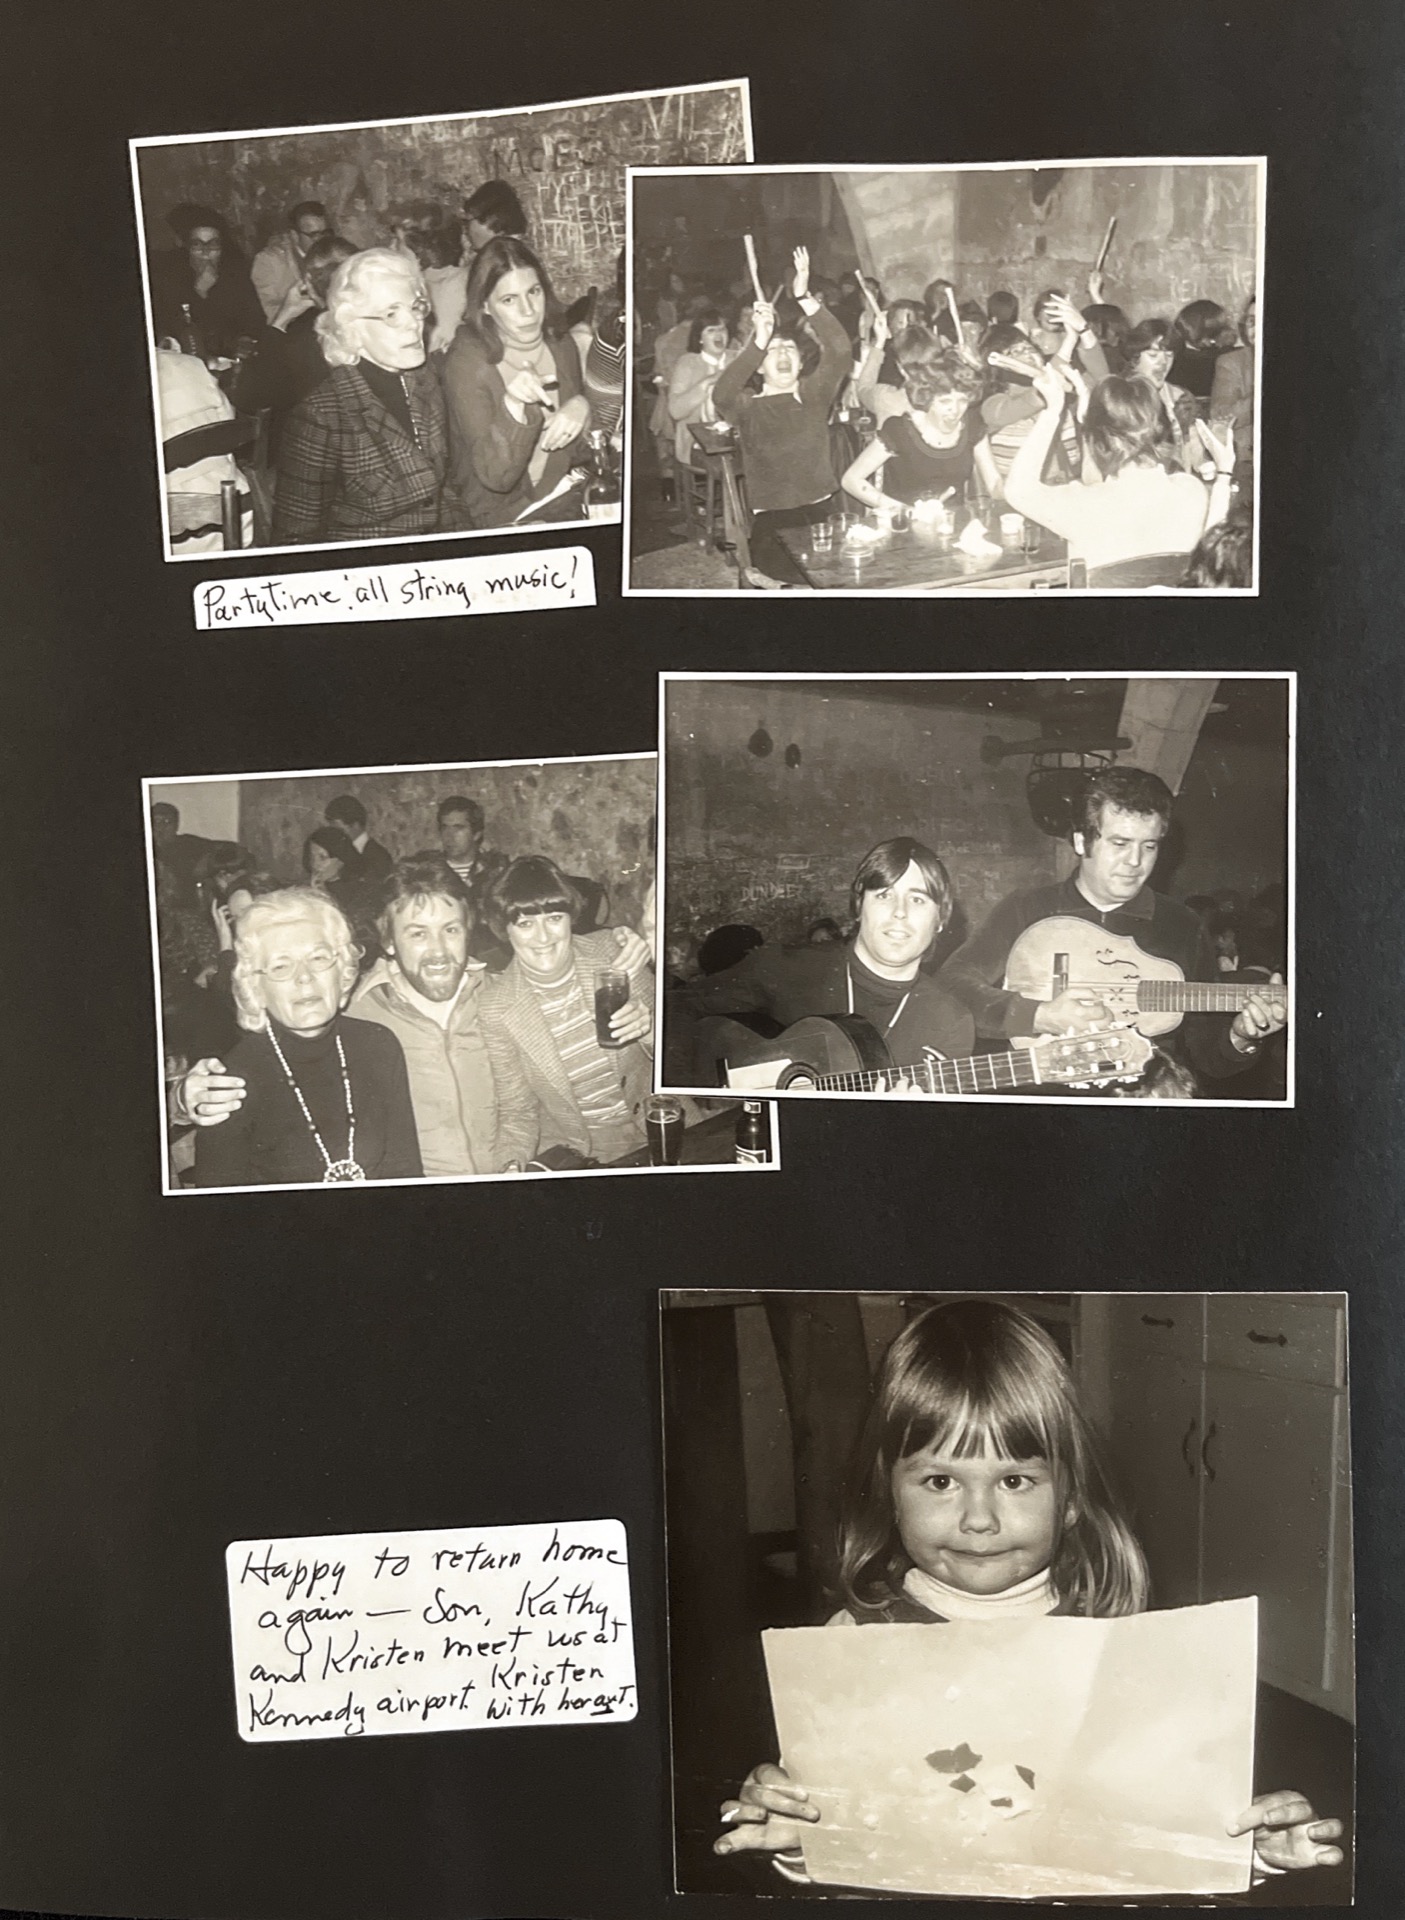 MOE
Partytime: all string music!
DUNDEE
Happy to return home
again — Son, Kathy,
and Kristen meet us at
Kennedy airport. Kristen
with her art.